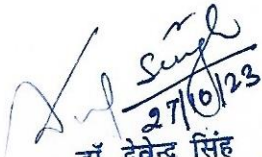 Singh
27/10/23
डॉ. देवेन्द्र सिंह